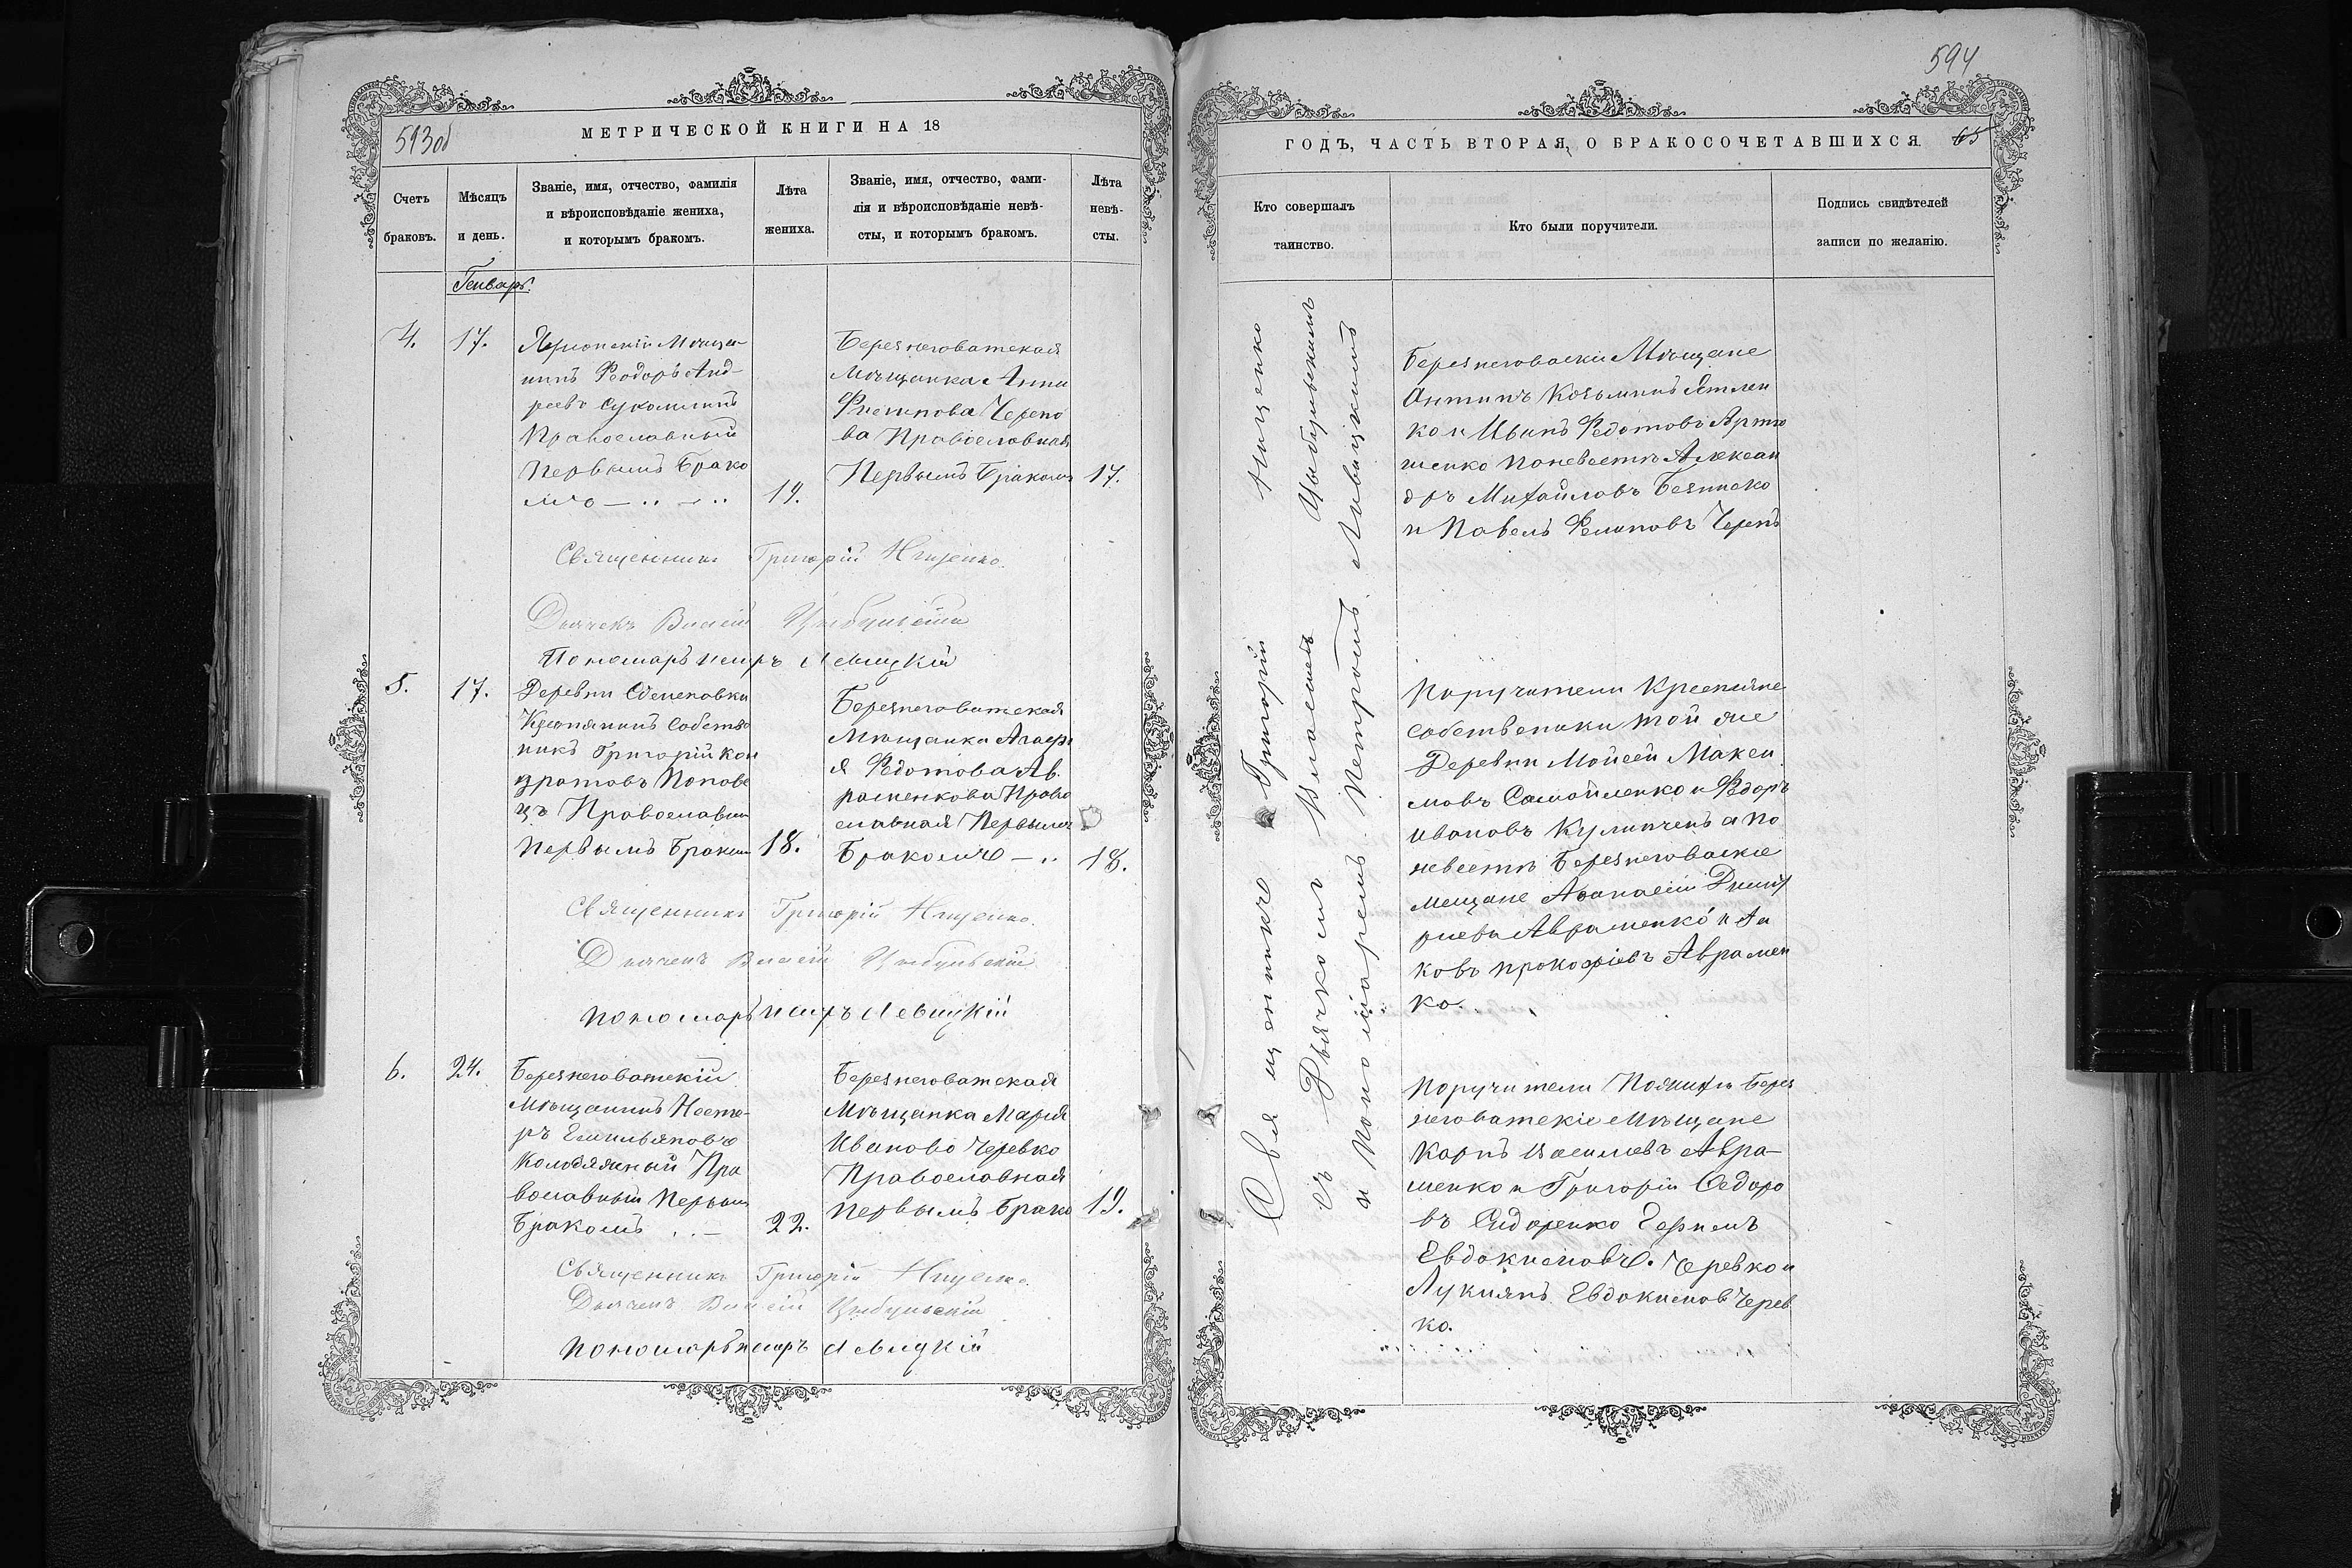 593об
МЕТРИЧЕСКОЙ КНИГИ НА 18
Счетъ
браковъ.
Мѣсяцъ
и день.
Званіе, имя, отчество, фамилія
и вѣроисповѣданіе жениха,
и которымъ бракомъ.
Лѣта
жениха.
Званіе, имя, отчество, фами-
лія и вѣроисповѣданіе невѣ-
сты, и которымъ бракомъ.
Лѣта
невѣ-
сты.
Генварь.
4.
17.
Мѣща
нинъ Феодоръ Анд-
реевъ
Православный
Первымъ Брако
мъ
19.
Березнеговатская
Мѣщанка Анна
Филипова Черепо
ва Православная
Первымъ Бракомъ
17.
Священникъ Григорій Нищенко.
Дьячекъ Власій Цыбульскій
Пономарь Петръ Левицкій
5.
17.
Деревни
Крестянинъ Собстве
никъ Григорій Кон
дратовъ Попове
цъ Православны
Первымъ Браком
18.
Березнеговатская
Мѣщанка Агафі
я Федотова Ав
раменкова Право
славная Первымъ
Бракомъ
18.
Священникъ Григорій Нищенко.
Дьячекъ Власій Цыбульскій
пономарь Петръ Левицкій
6.
24.
Березнеговатскій
Мѣщанинъ Несто-
ръ Емильяновъ
Колодяжный Пра
вославный Первым
Бракомъ
22.
Березнеговатская
Мѣщанка Марія
Иванова Черевко
Православная
первымъ Брако
19.
Священникъ Григорій Нищенко.
Дьячекъ Власій Цыбульскій
пономарь Петръ Левицкій
594
ГОДЪ, ЧАСТЬ ВТОРАЯ, О БРАКОСОЧЕТАВШИХСЯ.
65
Кто совершалъ
таинство.
Кто были поручители.
Подпись свидѣтелей
записи по желанію.
Священникъ Григорій Нищенко
съ Дьячкомъ Власіемъ Цыбульскимъ
и Пономаремъ Петромъ Левицкимъ
Березнеговаскіи Мѣщане
Антипъ Козьминъ
ко и Иванъ Федотовъ Артю
шенко поневѣстѣ Алексан
дръ Михайловъ
и Павелъ Филиповъ Черепъ
Поручители Крестьяне
собственики той же
Деревни Мойсей Макси
мовъ Самойленко и Федоръ
Ивановъ а по
невестѣ Березнеговаские
мещане Афанасій Дмит
риевъ Авраменко и Яа
ковъ Прокофіевъ Авромен
ко.
Поручители Берез
неговатскіе Мѣщане
Карпъ Василевъ Авра-
менко и Григорій Федоро
въ Сидоренко
Евдокимовъ. Черевко и
Лукиянъ Евдокимов Черев
ко.